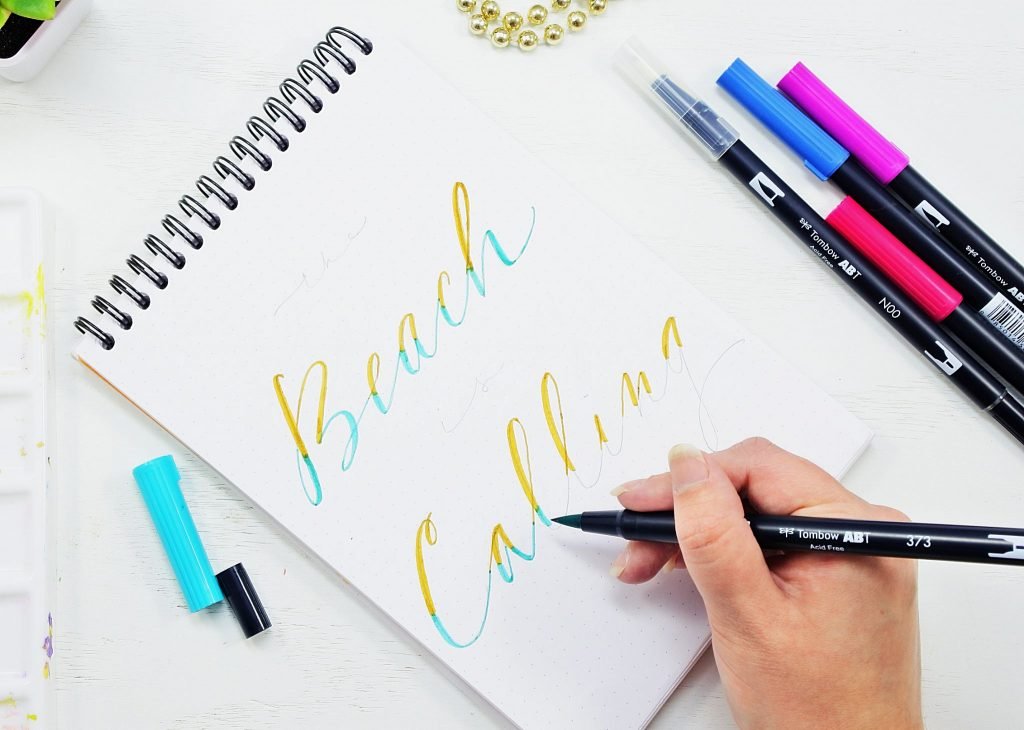 the
Beach
is
Calling
Tombow ABT
Acid Free
N00
Tombow AB
Tombow ABT
Acid Free
373